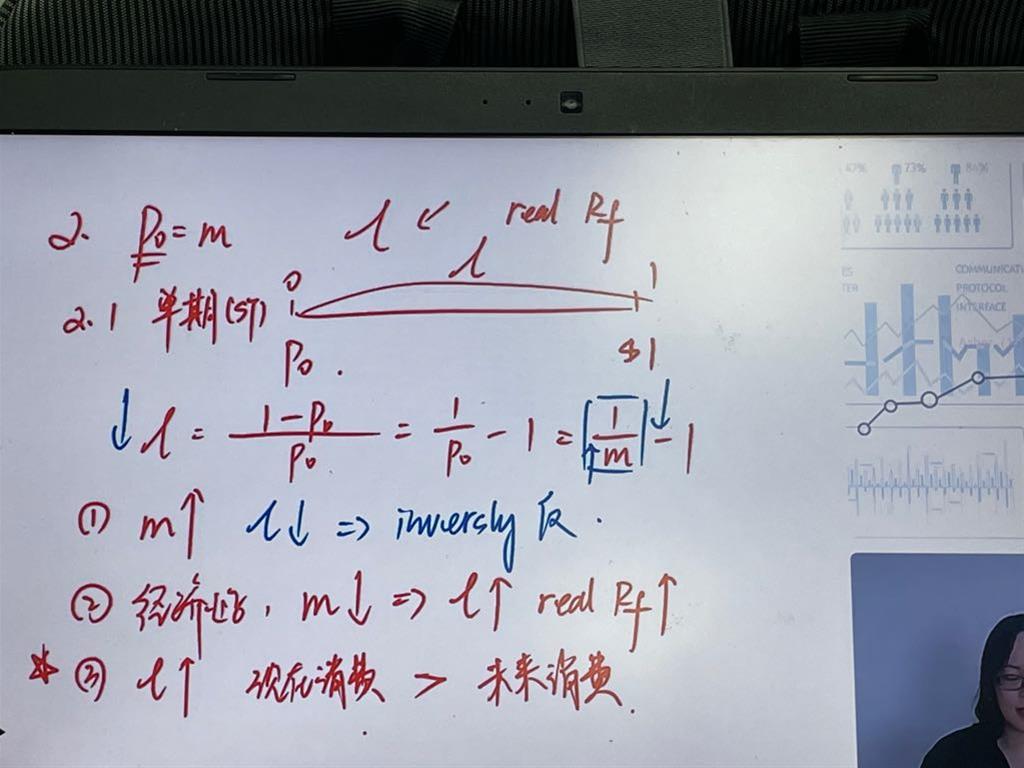 2. P₀ = m l ← real Rf
0 l 1
2.1 单期(ST)
P₀ . $1
↓ l = (1-P₀)/P₀ = 1/P₀ - 1 = 1/m ↓ - 1
① m↑ l↓ => inversly 反.
② 经济好, m↓ => l↑ real Rf↑
* ③ l↑ 现在消费 > 未来消费.
47% 73% 84%
COMMUNICAT
PROTOCOL
INTERFACE